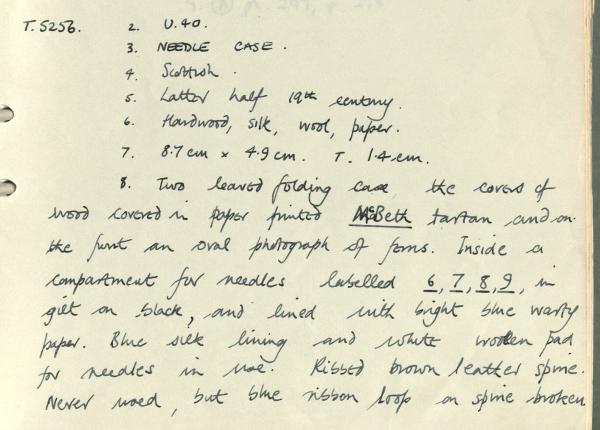 T.5256. 2. U.40.
3. NEEDLE CASE.
4. Scottish.
5. Latter half 19th century.
6. Hardwood, silk, wool, paper.
7. 8.7cm x 4.9cm. T. 1.4cm.
8. Two leaved folding case, the covers of
wood covered in paper printed McBeth tartan and on
the front an oval photograph of ferns. Inside a
compartment for needles labelled 6, 7, 8, 9, in
gilt on black, and lined with bright blue warty
paper. Blue silk lining and white woollen pad
for needles in use. Ribbed brown leather spine.
Never used, but blue ribbon loop on spine broken